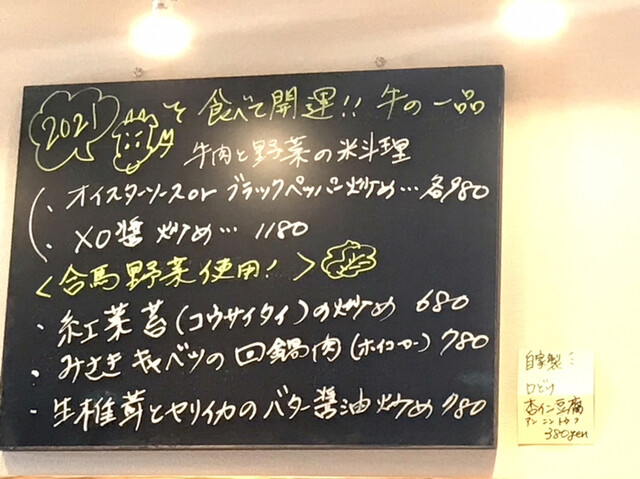 2021 そ 食べて開運!! 牛の一品
牛肉と野菜の米斗理
・オイスターソースor ブラックペッパー炒め…各980
・XO醤 炒め… 1180
<合馬野菜使用!>
・紅菜苔(コウサイタイ)の炒め 680
・みさきキャベツの回鍋肉(ホイコーロー) 780
・生椎茸とヤリイカのバター醤油炒め 980
自家製
口どけ
杏仁豆腐
アンニントウフ
380yen